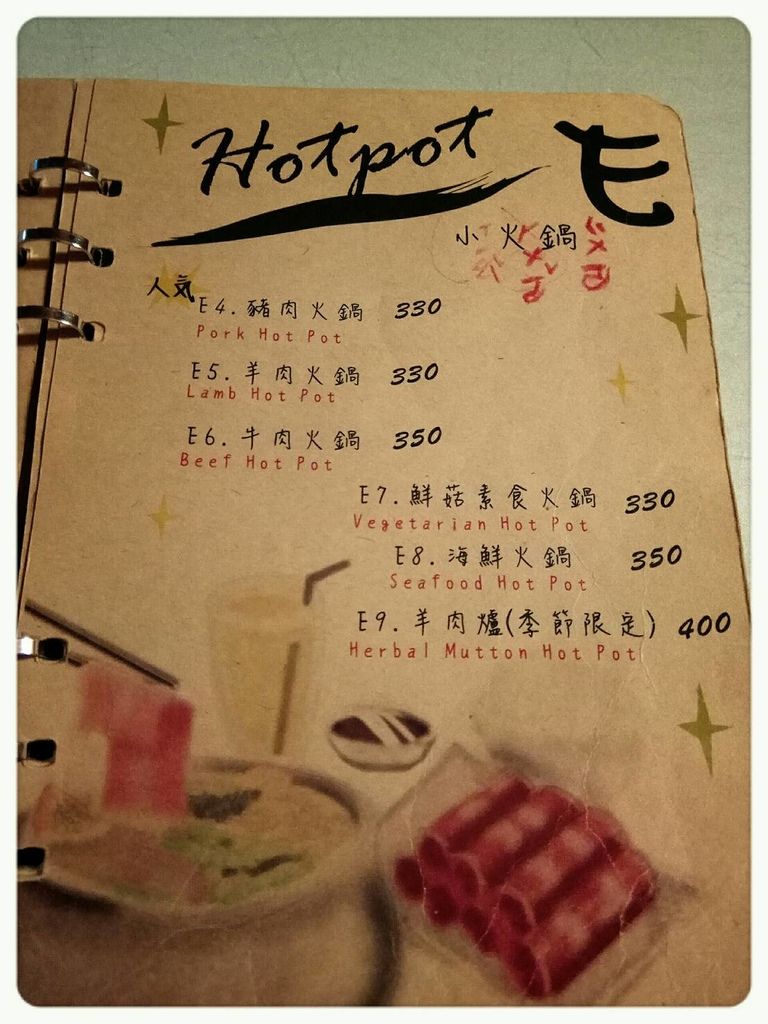 Hotpot E
小火鍋
人気
E4. 豬肉火鍋 330
Pork Hot Pot
E5. 羊肉火鍋 330
Lamb Hot Pot
E6. 牛肉火鍋 350
Beef Hot Pot
E7. 鮮菇素食火鍋 330
Vegetarian Hot Pot
E8. 海鮮火鍋 350
Seafood Hot Pot
E9. 羊肉爐(季節限定) 400
Herbal Mutton Hot Pot